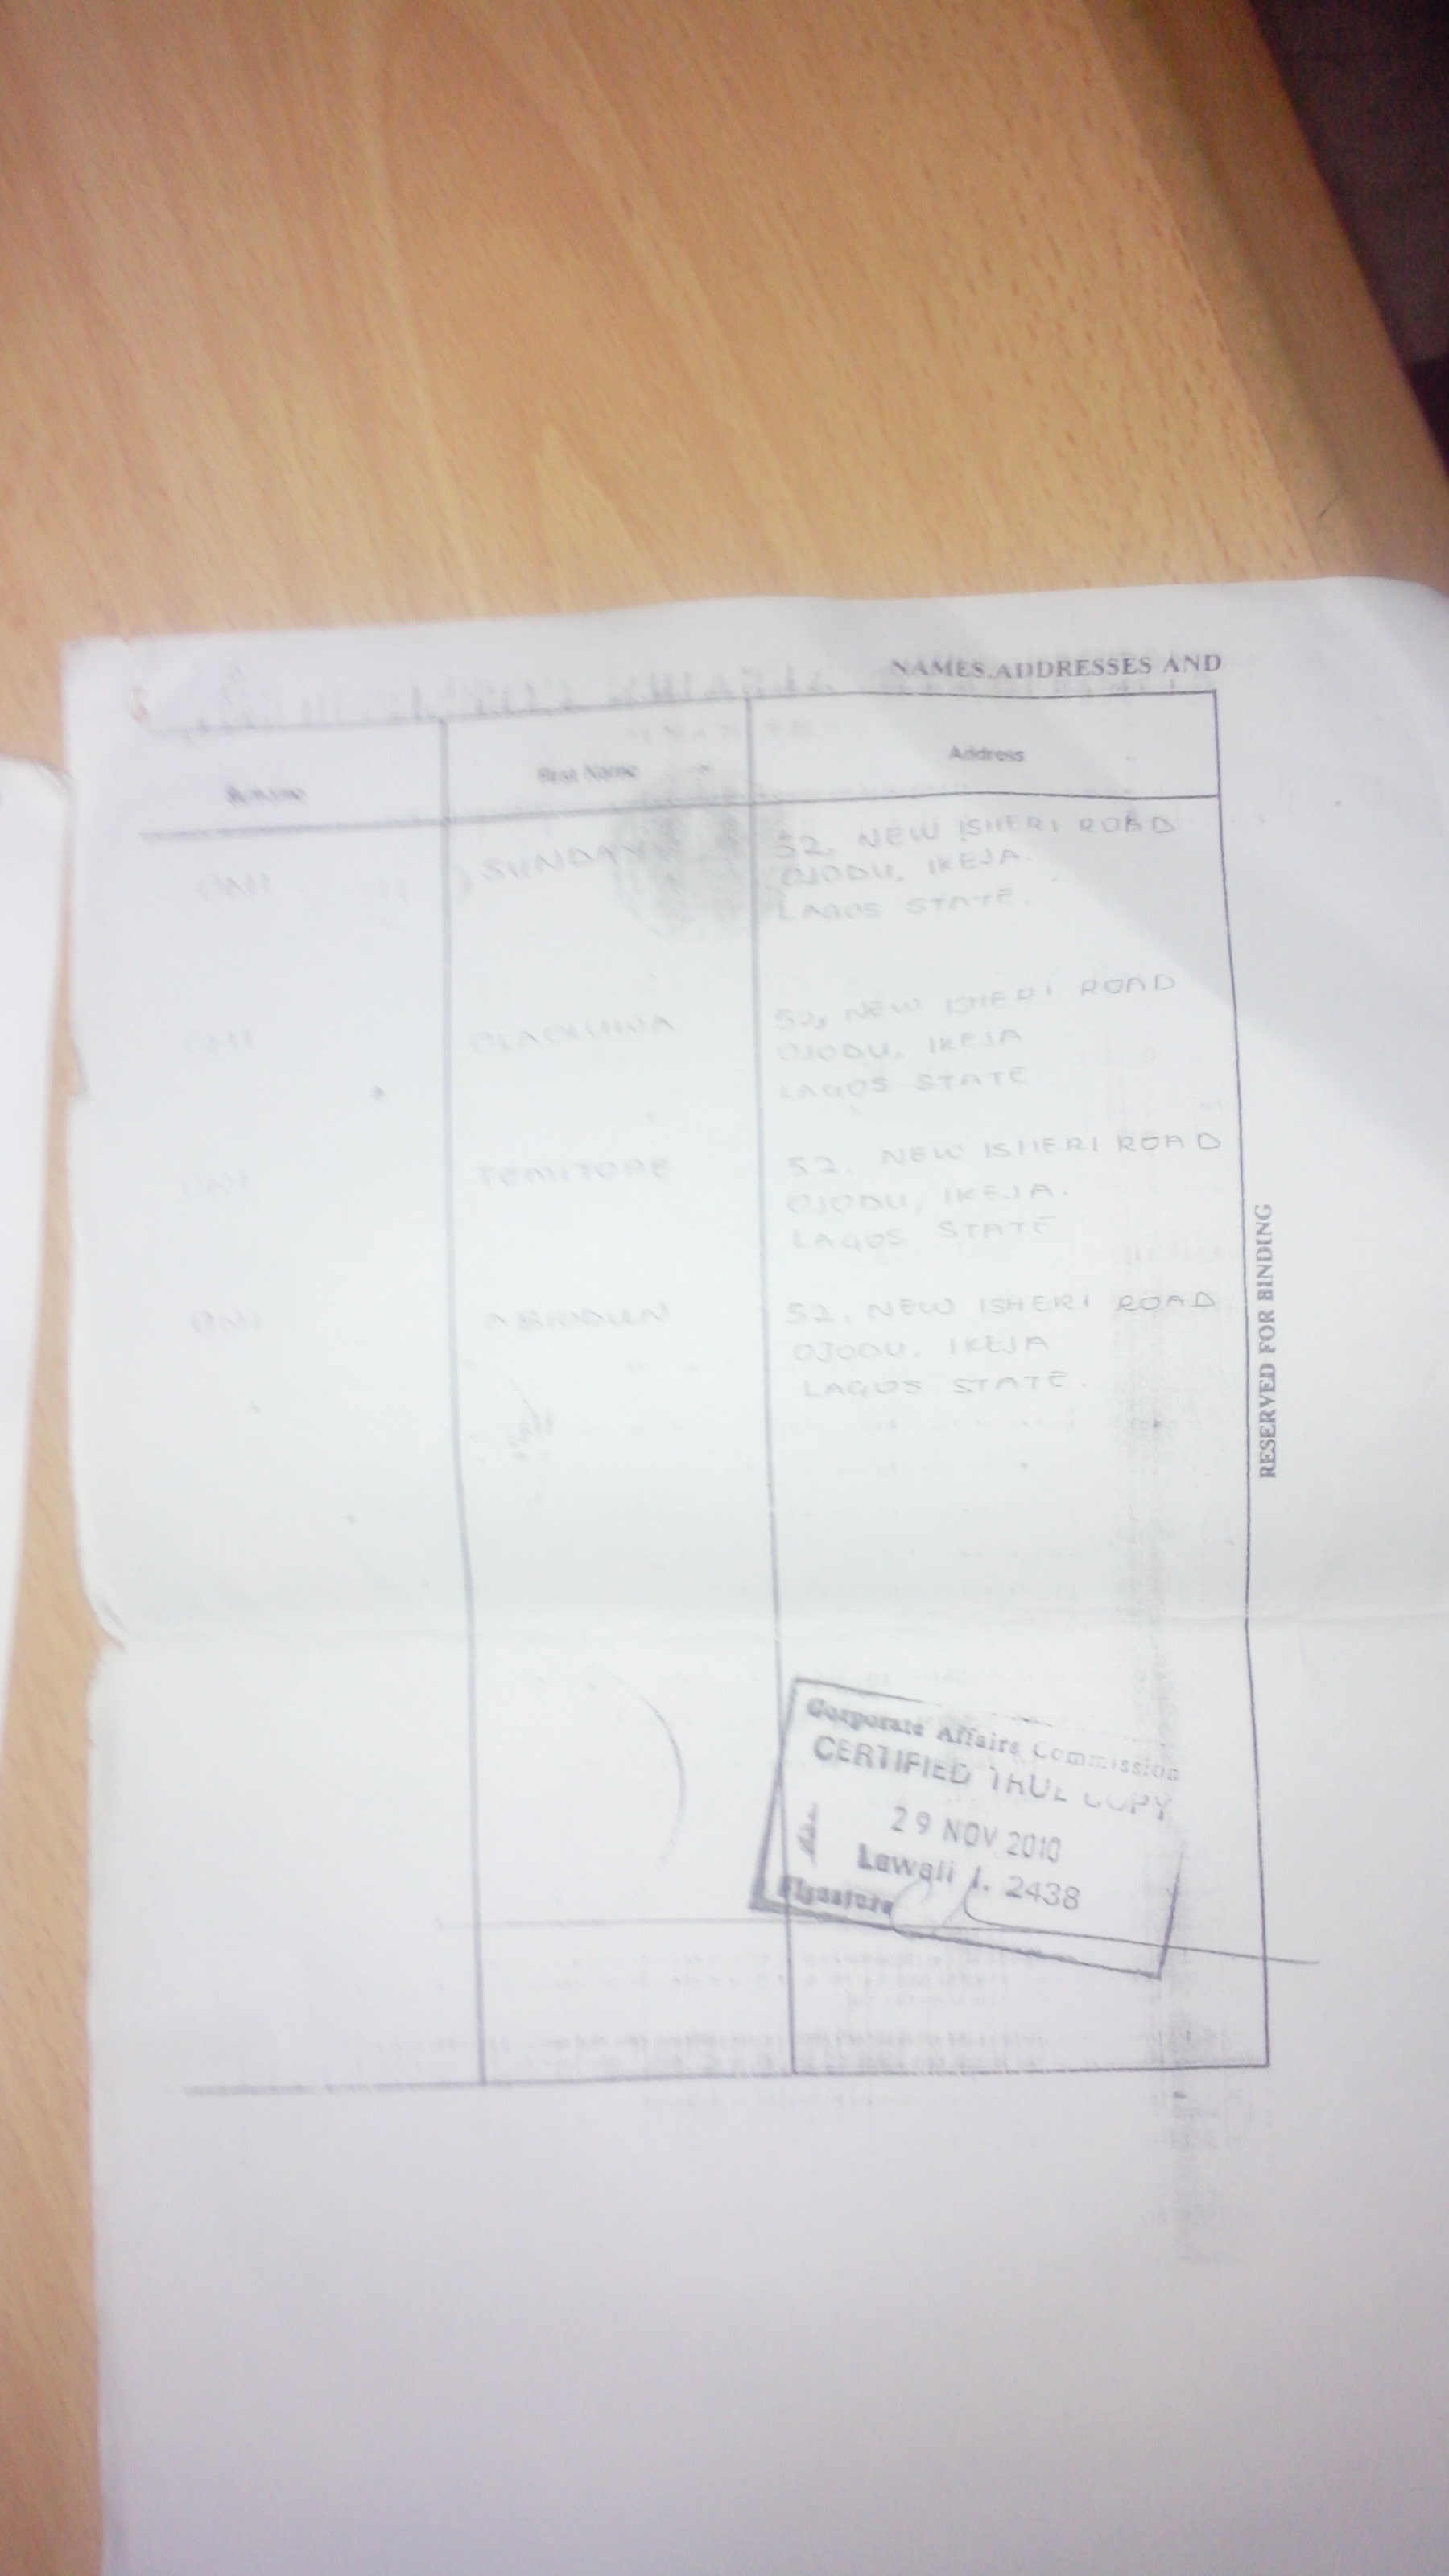 NAMES, ADDRESSES AND
Surname
First Name
Address
SUNDAY
52, NEW ISHERI ROAD
OJODU, IKEJA.
LAGOS STATE.
50, NEW ISHERI ROAD
OJODU, IKEJA
LAGOS STATE
TEMITOPE
52. NEW ISHERI ROAD
OJODU, IKEJA.
LAGOS STATE
ONI
ABIODUN
52. NEW ISHERI ROAD
OJODU. IKEJA
LAGOS STATE.
RESERVED FOR BINDING
Corporate Affairs Commission
CERTIFIED TRUE COPY
29 NOV 2010
Lawali I. 2438
Signature